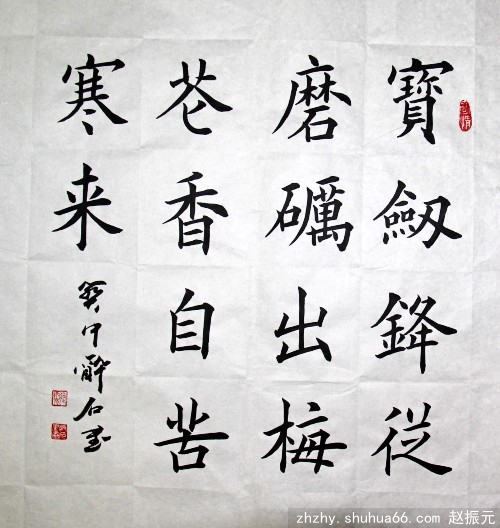 寶劔鋒從
磨礪出梅
花香自苦
寒来
zhzhy.shuhua66.com 赵振元